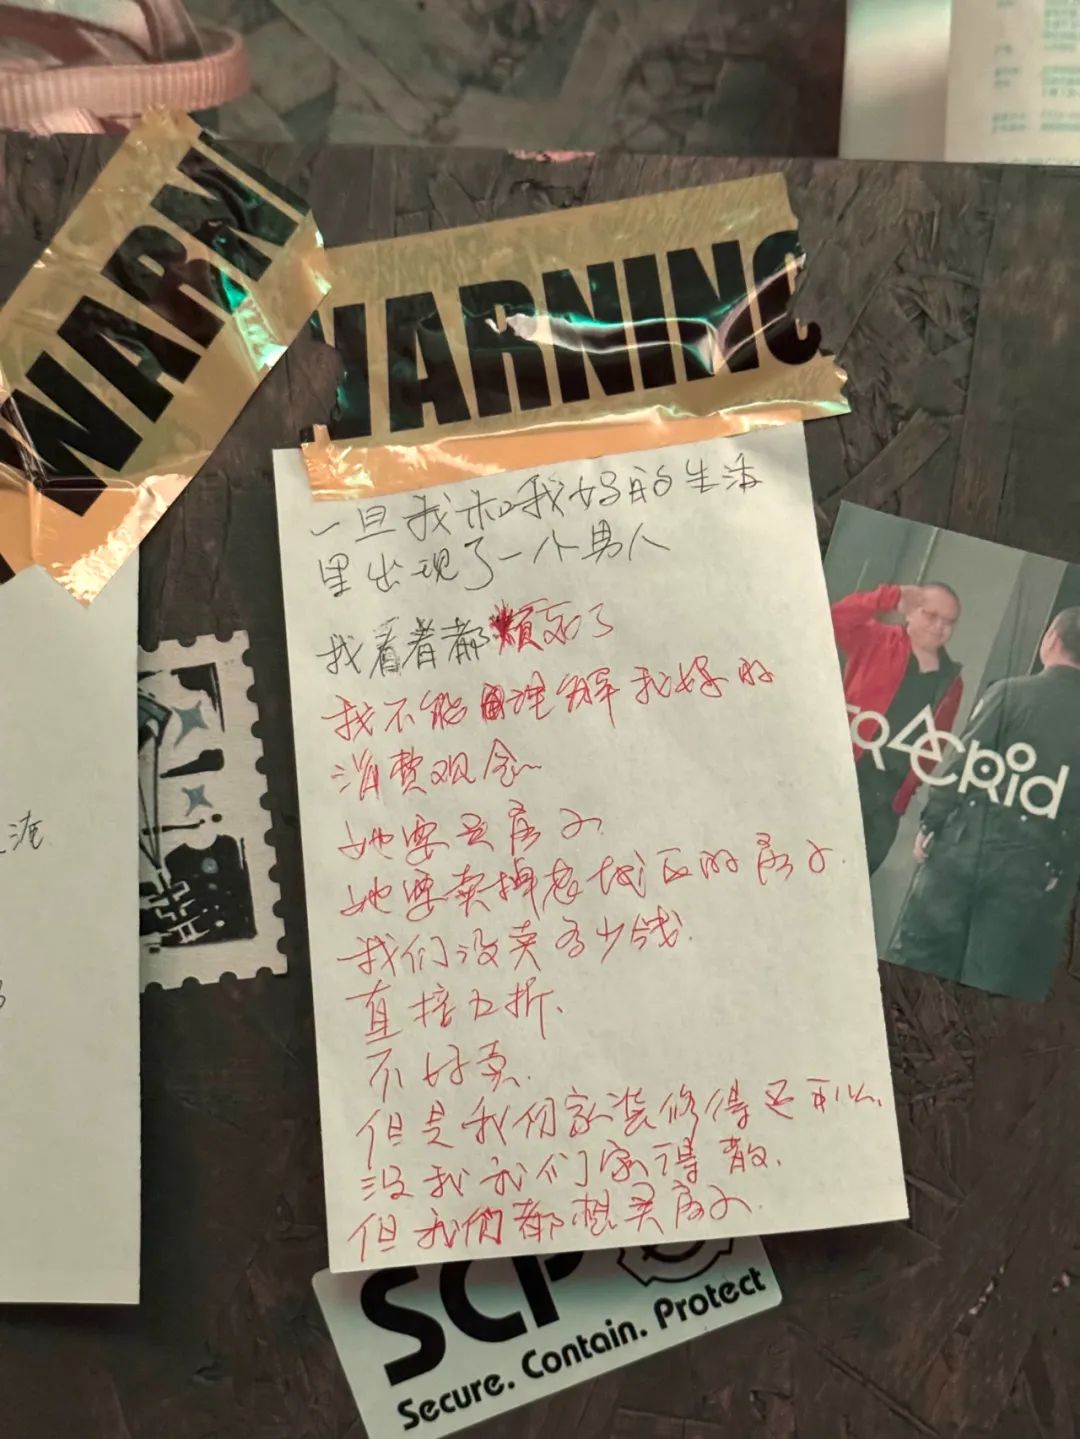 WARN
WARNING
一旦我和我妈的生活
里出现了一个男人
我看着都烦死了
我不能理解我妈的
消费观念
她要买房子
她要卖掉老城区的房子.
我们没卖多少钱.
直接五折、
不好卖.
但是我们家装修得还可以.
没我我们家得散.
但我们都想买房子.
ACRid
SCP
Secure. Contain. Protect